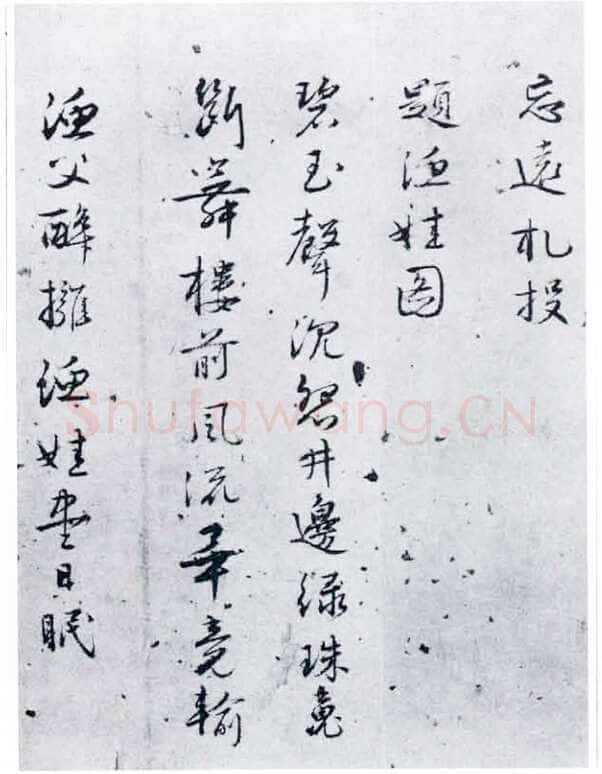 忘遠札投
題漁娃图
碧玉聲沉怨井邊綠珠魂
斷舞樓前風流畢竟輸
漁父醉擁漁娃盡日眠
Shufawang.CN